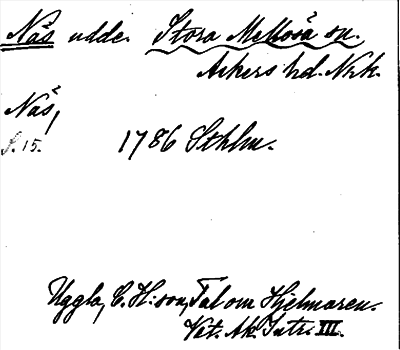 Näs udde. Stora Mellösa sn.
Askers hd. Nrk.
Näs,
s. 15.
1786 Sthlm.
Uggla, C. H:son, Tal om Hjelmaren.
Vet. Ak. Intr. III.